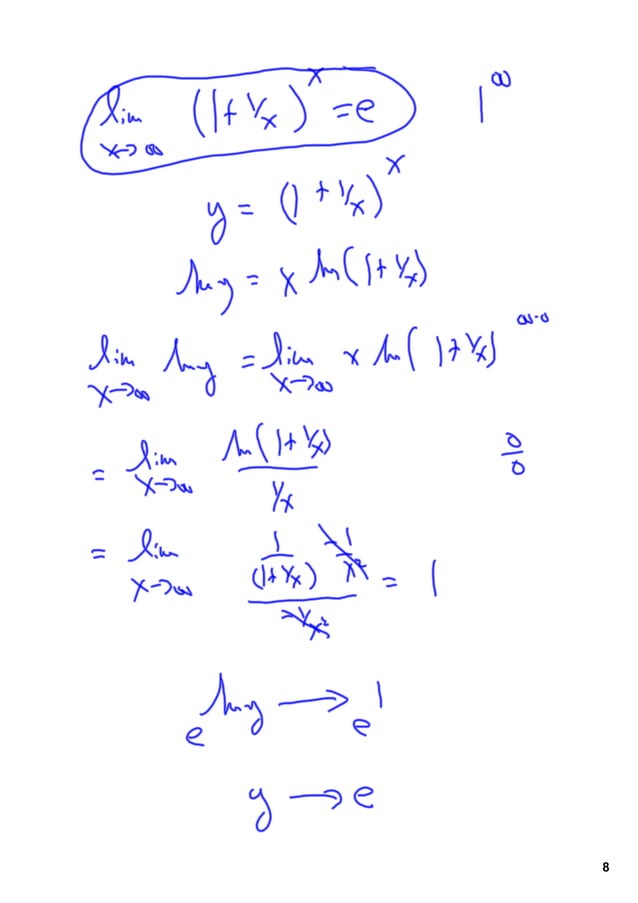 lim x→∞ (1+1/x)^x = e 1^∞
y = (1+1/x)^x
ln y = x ln(1+1/x)
lim x→∞ ln y = lim x→∞ x ln(1+1/x) ∞·0
= lim x→∞ ln(1+1/x) / (1/x) 0/0
= lim x→∞ (1/(1+1/x) · -1/x²) / (-1/x²) = 1
e^(ln y) → e^1
y → e
8